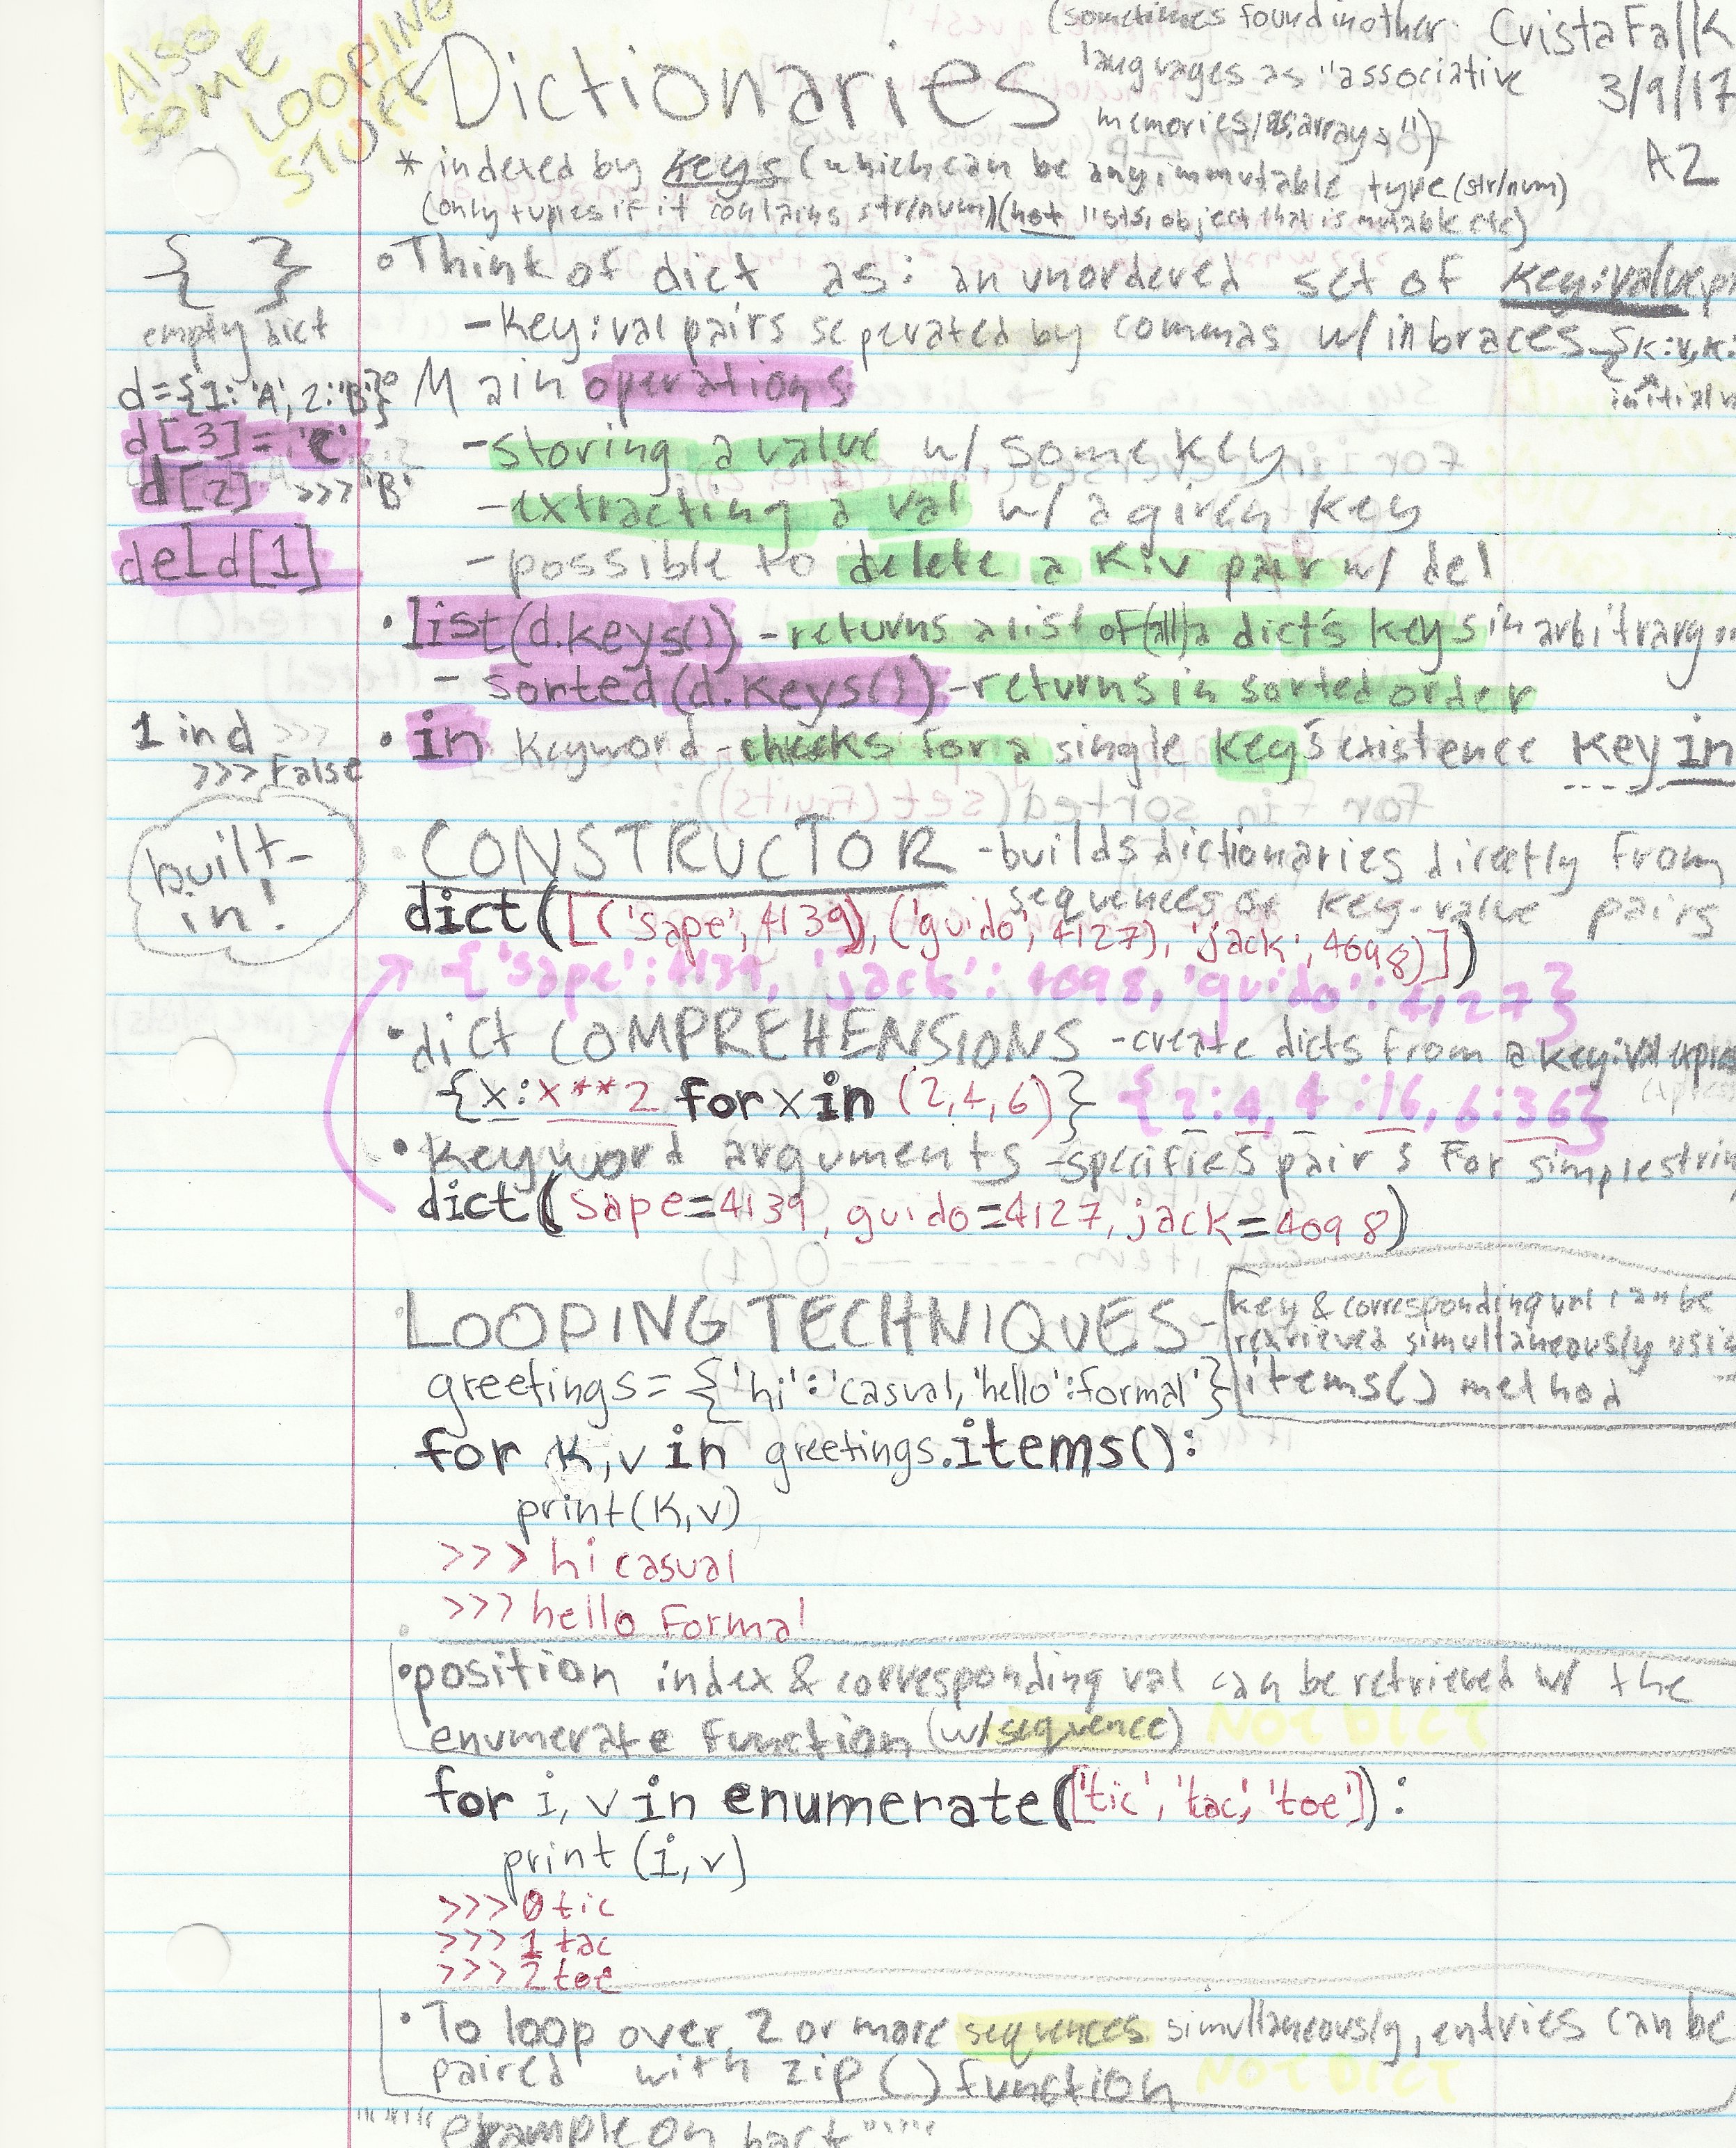 Also
SOME
LOOPING
STUFF
(sometimes found in other
languages as "associative
memories/ arrays")
Crista Falk
3/9/17
A2
Dictionaries
* indexed by keys (which can be any immutable type (str/num)
(only tuples if it contains str/num)(not lists, object that is mutable etc)
{ }
empty dict
○ Think of dict as: an unordered set of key:value
-Key:val pairs seperated by commas w/in braces {K:v,K:
d={1:'A', 2:'B'}
Main operations
d[3]='C'
-storing a value w/ some key
d[2] >>> 'B'
-extracting a val w/ a given key
del d[1]
-possible to delete a K:v pair w/ del
• list(d.keys()) -returns a list of (all) a dict's keys in arbitrary
- sorted(d.keys()) -returns in sorted order
1 in d >>>
>>> False
• in keyword -checks for a single key's existence key in
built-
in!
CONSTRUCTOR -builds dictionaries directly from
sequences of key-value pairs
dict([('sape',4139),('guido',4127),'jack',4098)])
{'sape':4139, 'jack':4098, 'guido':4127}
• dict COMPREHENSIONS -create dicts from a key:val
{x:x**2 for x in (2,4,6)} {2:4, 4:16, 6:36}
• Keyword arguments -specifies pairs for simple
dict(sape=4139, guido=4127, jack=4098)
LOOPING TECHNIQUES-
key & corresponding val can be
retrieved simultaneously
items() method
greetings={'hi':'casual,'hello':formal'}
for K,v in greetings.items():
print(K,v)
>>> hi casual
>>> hello Formal
• position index & corresponding val can be retrieved w/ the
enumerate function (w/sequence) NOT DICT
for i,v in enumerate(['tic','tac','toe']):
print(i,v)
>>> 0 tic
>>> 1 tac
>>> 2 toe
• To loop over 2 or more sequences simultaneously, entries can be
paired with zip() function NOT DICT
example on